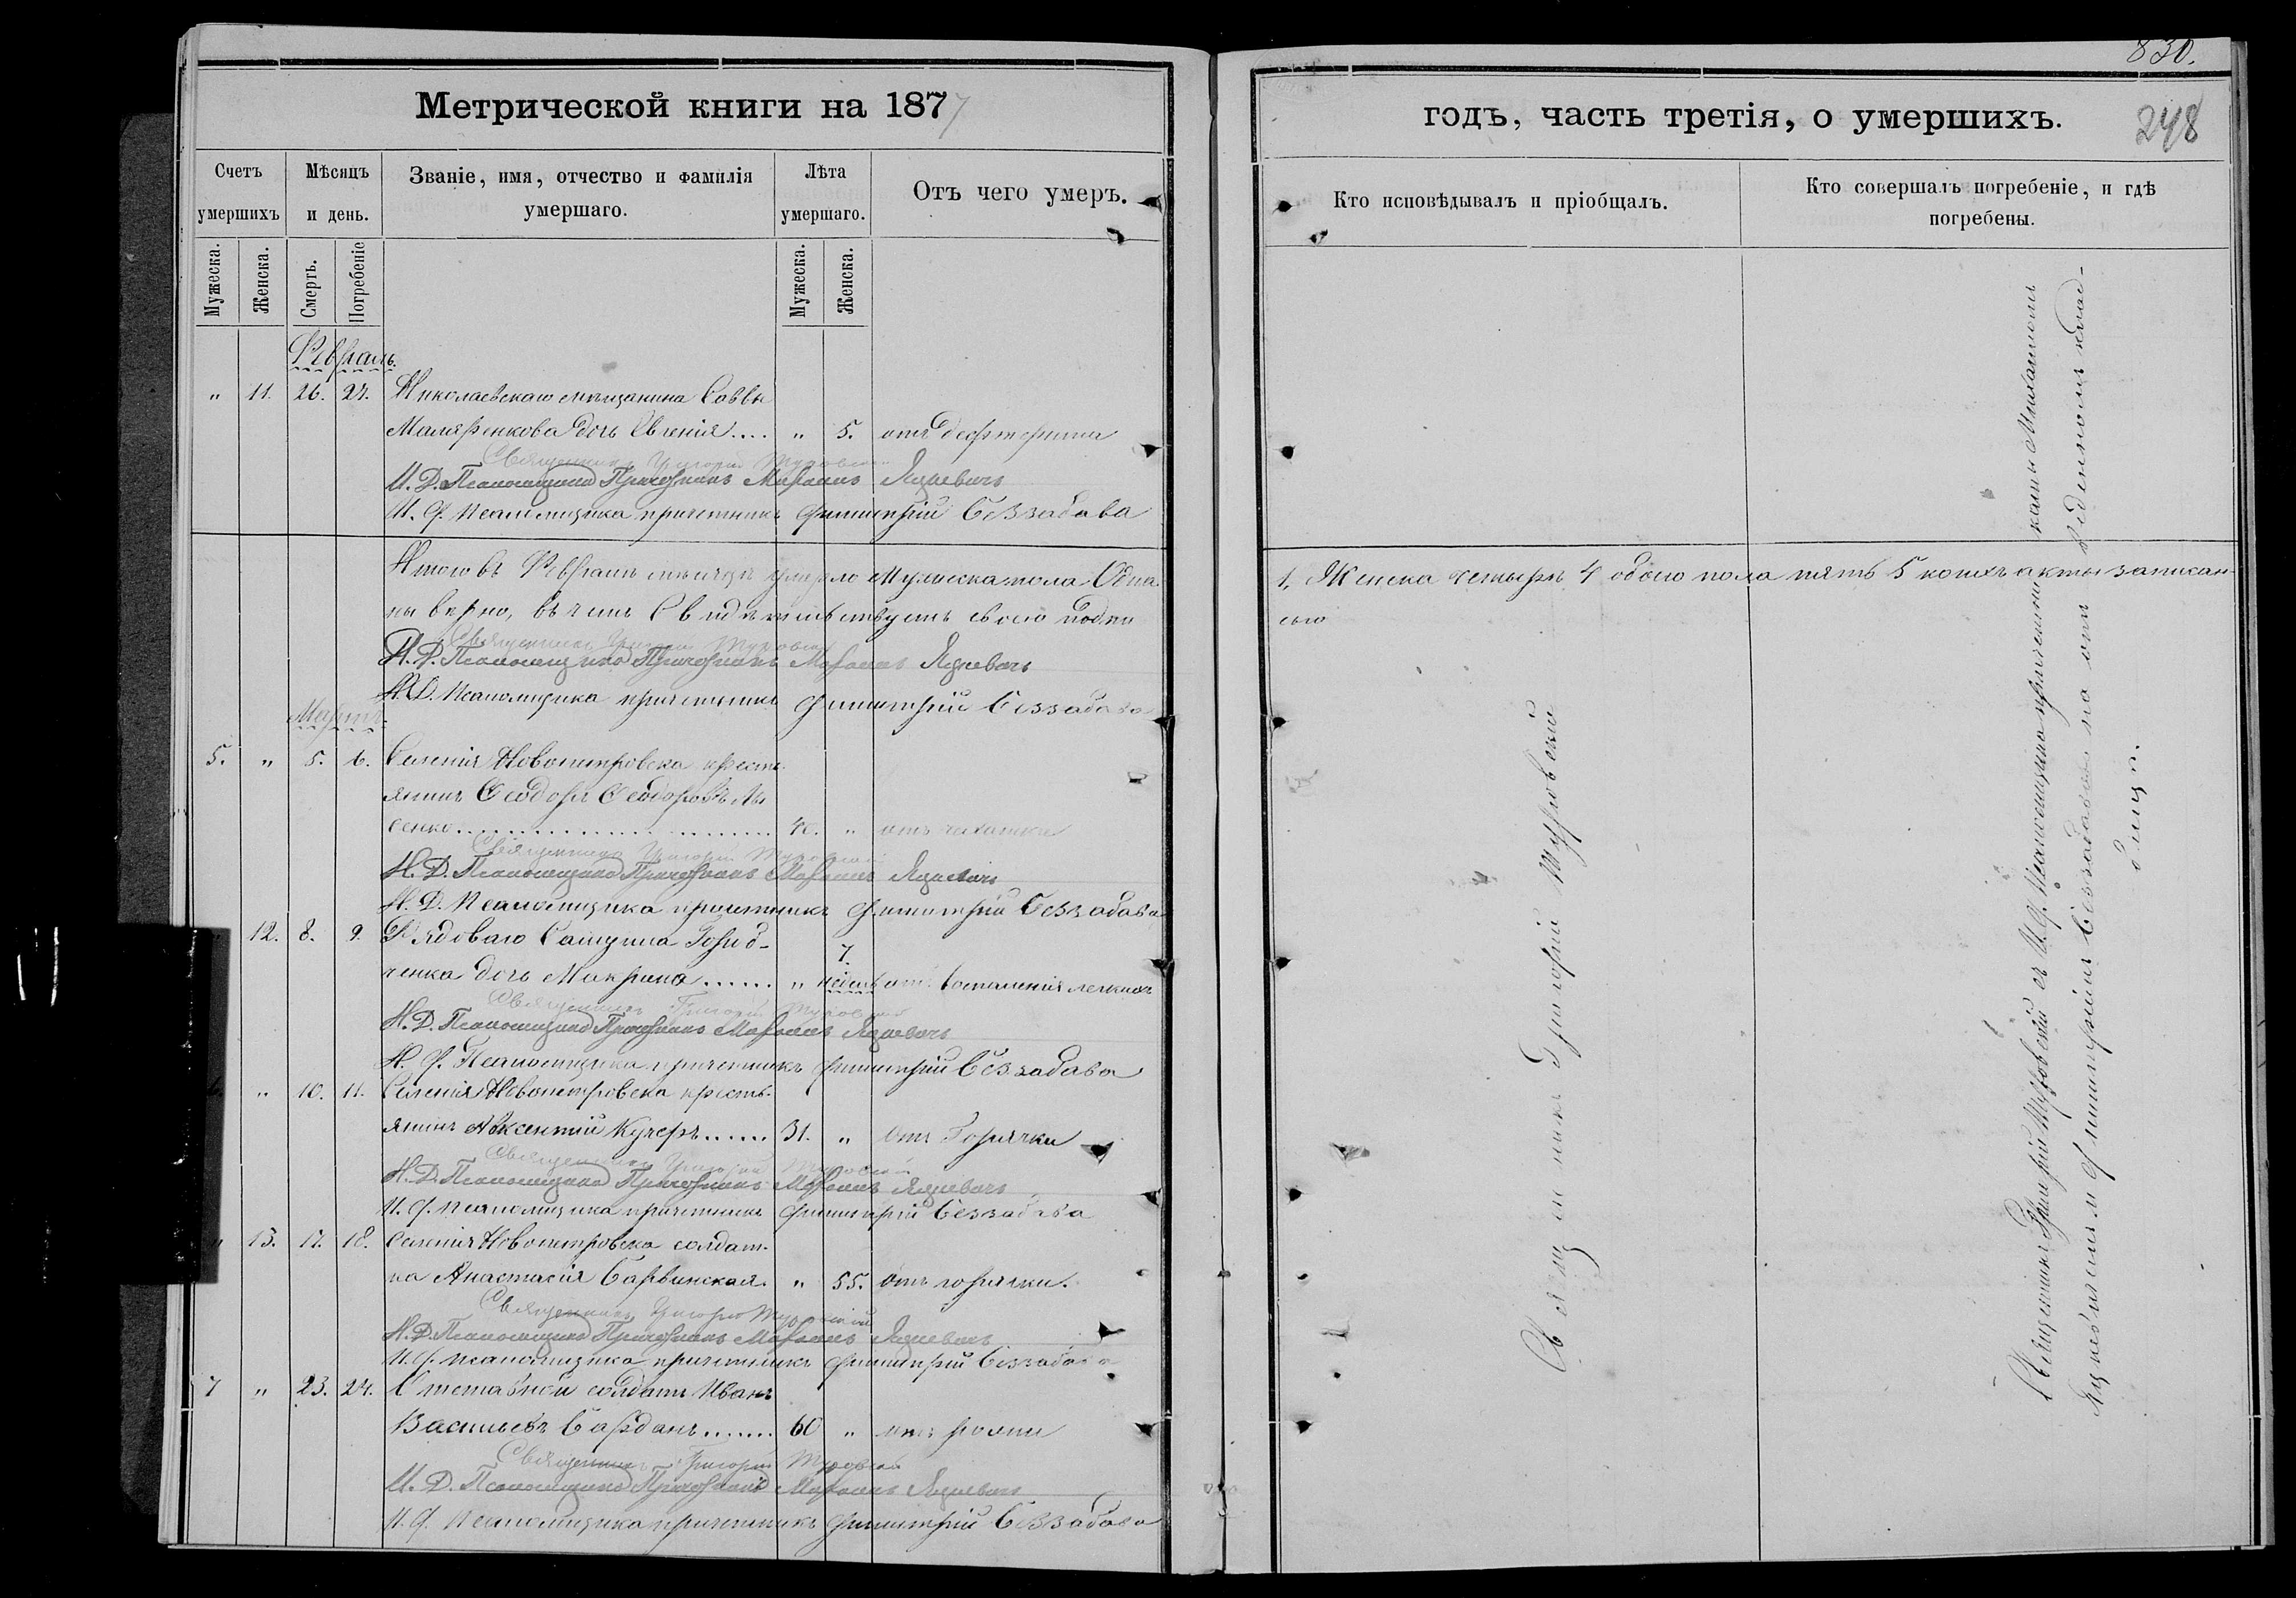 830.
Метрической книги на 1877
годъ, часть третія, о умершихъ.
248
Счетъ умершихъ
Мѣсяцъ и день.
Званіе, имя, отчество и фамилія умершаго.
Лѣта умершаго.
Отъ чего умеръ.
Кто исповѣдывалъ и пріобщалъ.
Кто совершалъ погребеніе, и гдѣ погребены.
Мужеска.
Женска.
Смерть.
Погребеніе
Мужеска.
Женска.
Февраль.
" 11. 26. 27. Николаевскаго мѣщанина Саввы
Маляренкова дочь Евгенія.... " 5. отъ дефтерита
Священникъ Григорій Туровскій
И. Д. Псаломщика Причетникъ Михаилъ Яцкевичъ
И. Д. Псаломщика причетникъ Димитрій Беззабава
Итого въ Февралѣ мѣсяцѣ умерло Мужеска пола Одинъ
1, Женска четыре 4 обоего пола пять 5 коихъ акты записан-
ны верно, въ чемъ Свидѣтельствуемъ своею подпи
сью
Священникъ Григорій Туровскій
И. Д. Псаломщика Причетникъ Михаилъ Яцкевичъ
И. Д. Псаломщика причетникъ Димитрій Беззабава
Мартъ.
5. " 5. 6. Селенія Новопетровска кресть-
янинъ Феодоръ Феодоровъ Лы
сенко.......... 40. " отъ чахотки
Священникъ Григорій Туровскій
И. Д. Псаломщика Причетникъ Михаилъ Яцкевичъ
И. Д. Псаломщика причетникъ Димитрій Беззабава
12. 8. 9. Рядоваго
ченка дочь Макрина...... " 7. недель отъ воспаленія легкихъ
Священникъ Григорій Туровскій
И. Д. Псаломщика Причетникъ Михаилъ Яцкевичъ
И. Д. Псаломщика причетникъ Димитрій Беззабава
" 10. 11. Селенія Новопетровска кресть-
янинъ Авксентий Кучеръ...... 31. " Отъ Горячки
Священникъ Григорій Туровскій
И. Д. Псаломщика Причетникъ Михаилъ Яцкевичъ
И. Д. Псаломщика причетникъ Димитрій Беззабава
" 13. 17. 18. Селенія Новопетровска солдат-
ка Анастасія Барвинская. " 55. отъ горячки.
Священникъ Григорій Туровскій
И. Д. Псаломщика Причетникъ Михаилъ Яцкевичъ
И. Д. Псаломщика причетникъ Димитрій Беззабава
7 " 23. 24. Отставной солдатъ Иванъ
Васильевъ Барданъ....... 60 " отъ
Священникъ Григорій Туровскій
И. Д. Псаломщика Причетникъ Михаилъ Яцкевичъ
И. Д. Псаломщика причетникъ Димитрій Беззабава
Священникъ Григорій Туровскій
Священникъ Григорій Туровскій съ И. Д. Псаломщика причетниками Михаиломъ
Яцкевичемъ и Димитріемъ Беззабавою на отведенномъ клад-
бищѣ.